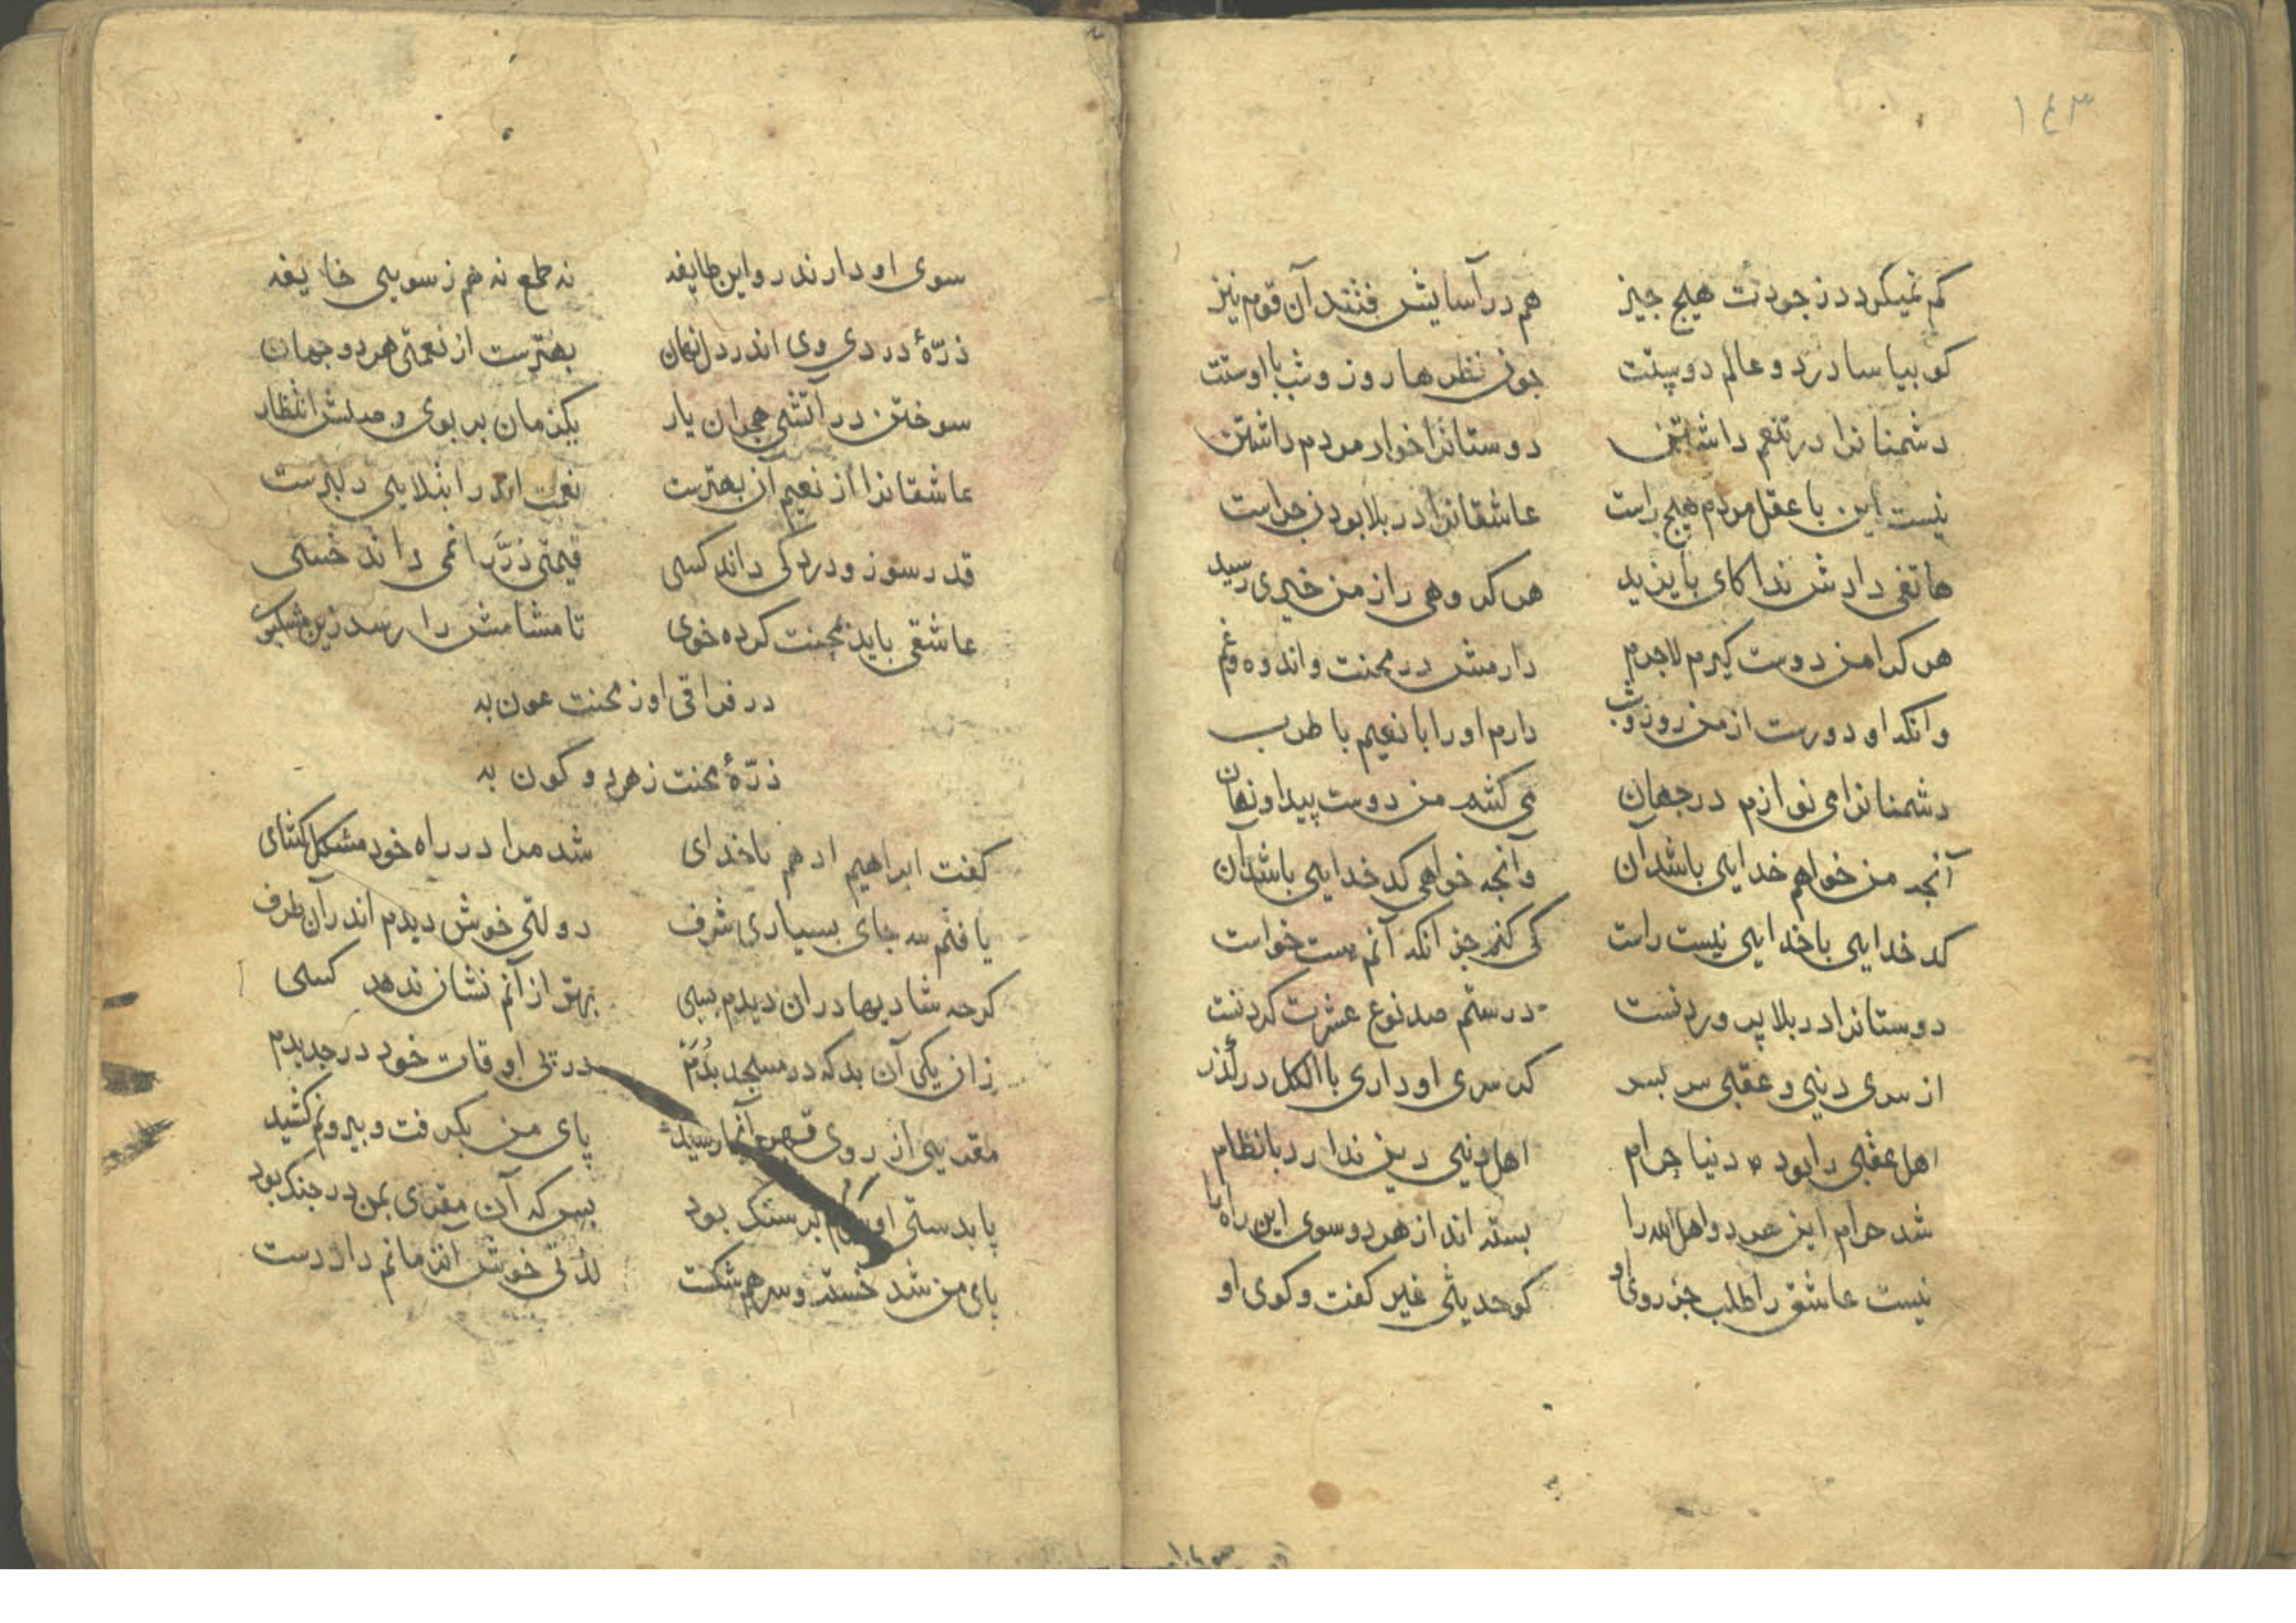 ١٤٣
کم نمیکردد ز جودت هیچ جیز هم در آسایش فتند آن قوم نیز
کو بیاسا درد و عالم دوستت جون نظرها روز و شب با اوستت
دشمنانرا در تنعم داشتن دوستانرا خوار مردم داشتن
نیست این با عقل مردم هیچ راست عاشقانرا در بلا بودن جراست
هاتفی دادش ندا کای بایزید هر که وهی را ز من خیری رسید
هر کرا من دوست کیرم لاجرم دارمش در محنت و اندوه و غم
وانکه او دورست از من روز و شب دارم او را با نعیم با طرب
دشمنانرا می نوازم در جهان می کشم من دوست پیدا و نهان
آنجه من خواهم خدایی باشد آن وآنجه خواهی کدخدایی باشد آن
کدخدایی با خدایی نیست راست کی کنم جز انکه آنم هست خواست
دوستانرا در بلا پروردنست در ستم صد نوع عشرت کردنست
از سری دنیی و عقبی سر بسر که سری او داری با الکل در کذر
اهل عقبی را بود دنیا حرام اهل دنیی دین ندارد با نظام
شد حرام این هر دو اهل الله را بسته اند از هر دو سوی این راه را
نیست عاشق را طلب جز روی او کو حدیثی غیر کفت و کوی او
سوی او دارند رو این طایفه نه طمع نه هم ز سویی خایفه
ذرّهٔ دردی وی اندر دل نهان بهترست از نعمتی هر دو جهان
سوختن در آتشی هجران یار یکزمان بر بوی وصلش انتظار
عاشقانرا از نعیم آن بهترست نعمت اندر ابتلایی دلبرست
قدر سوز و درد کی داند کسی قیمتی دُرّ را نمی داند خسی
عاشقی باید بمحنت کرده خوی تا مشامش را رسد زین مشکبوی
در فراقی او ز محنت عون به
ذرّهٔ محنت ز هر دو کون به
کفت ابراهیم ادهم با خدای شد مرا در راه خود مشکل کشای
یافتم سه جای بسیاری شرف دولتی خوش دیدم اندر آن طرف
کرجه شادیها در ان دیدم بسی بهتر از آنم نشان ندهد کسی
زان یکی آن بد که در مسجد بُدَم در تی اوقات خود در جد بدم
مقریی از روی قهر آنجا رسید پای من بکرفت و بیرونم کشید
پا بدستی او سرم بر سنک بود بس که آن مقری بمن در جنک بود
پای من شد خسته و سر هم شکست لذتی خوش آنزمانم داد دست